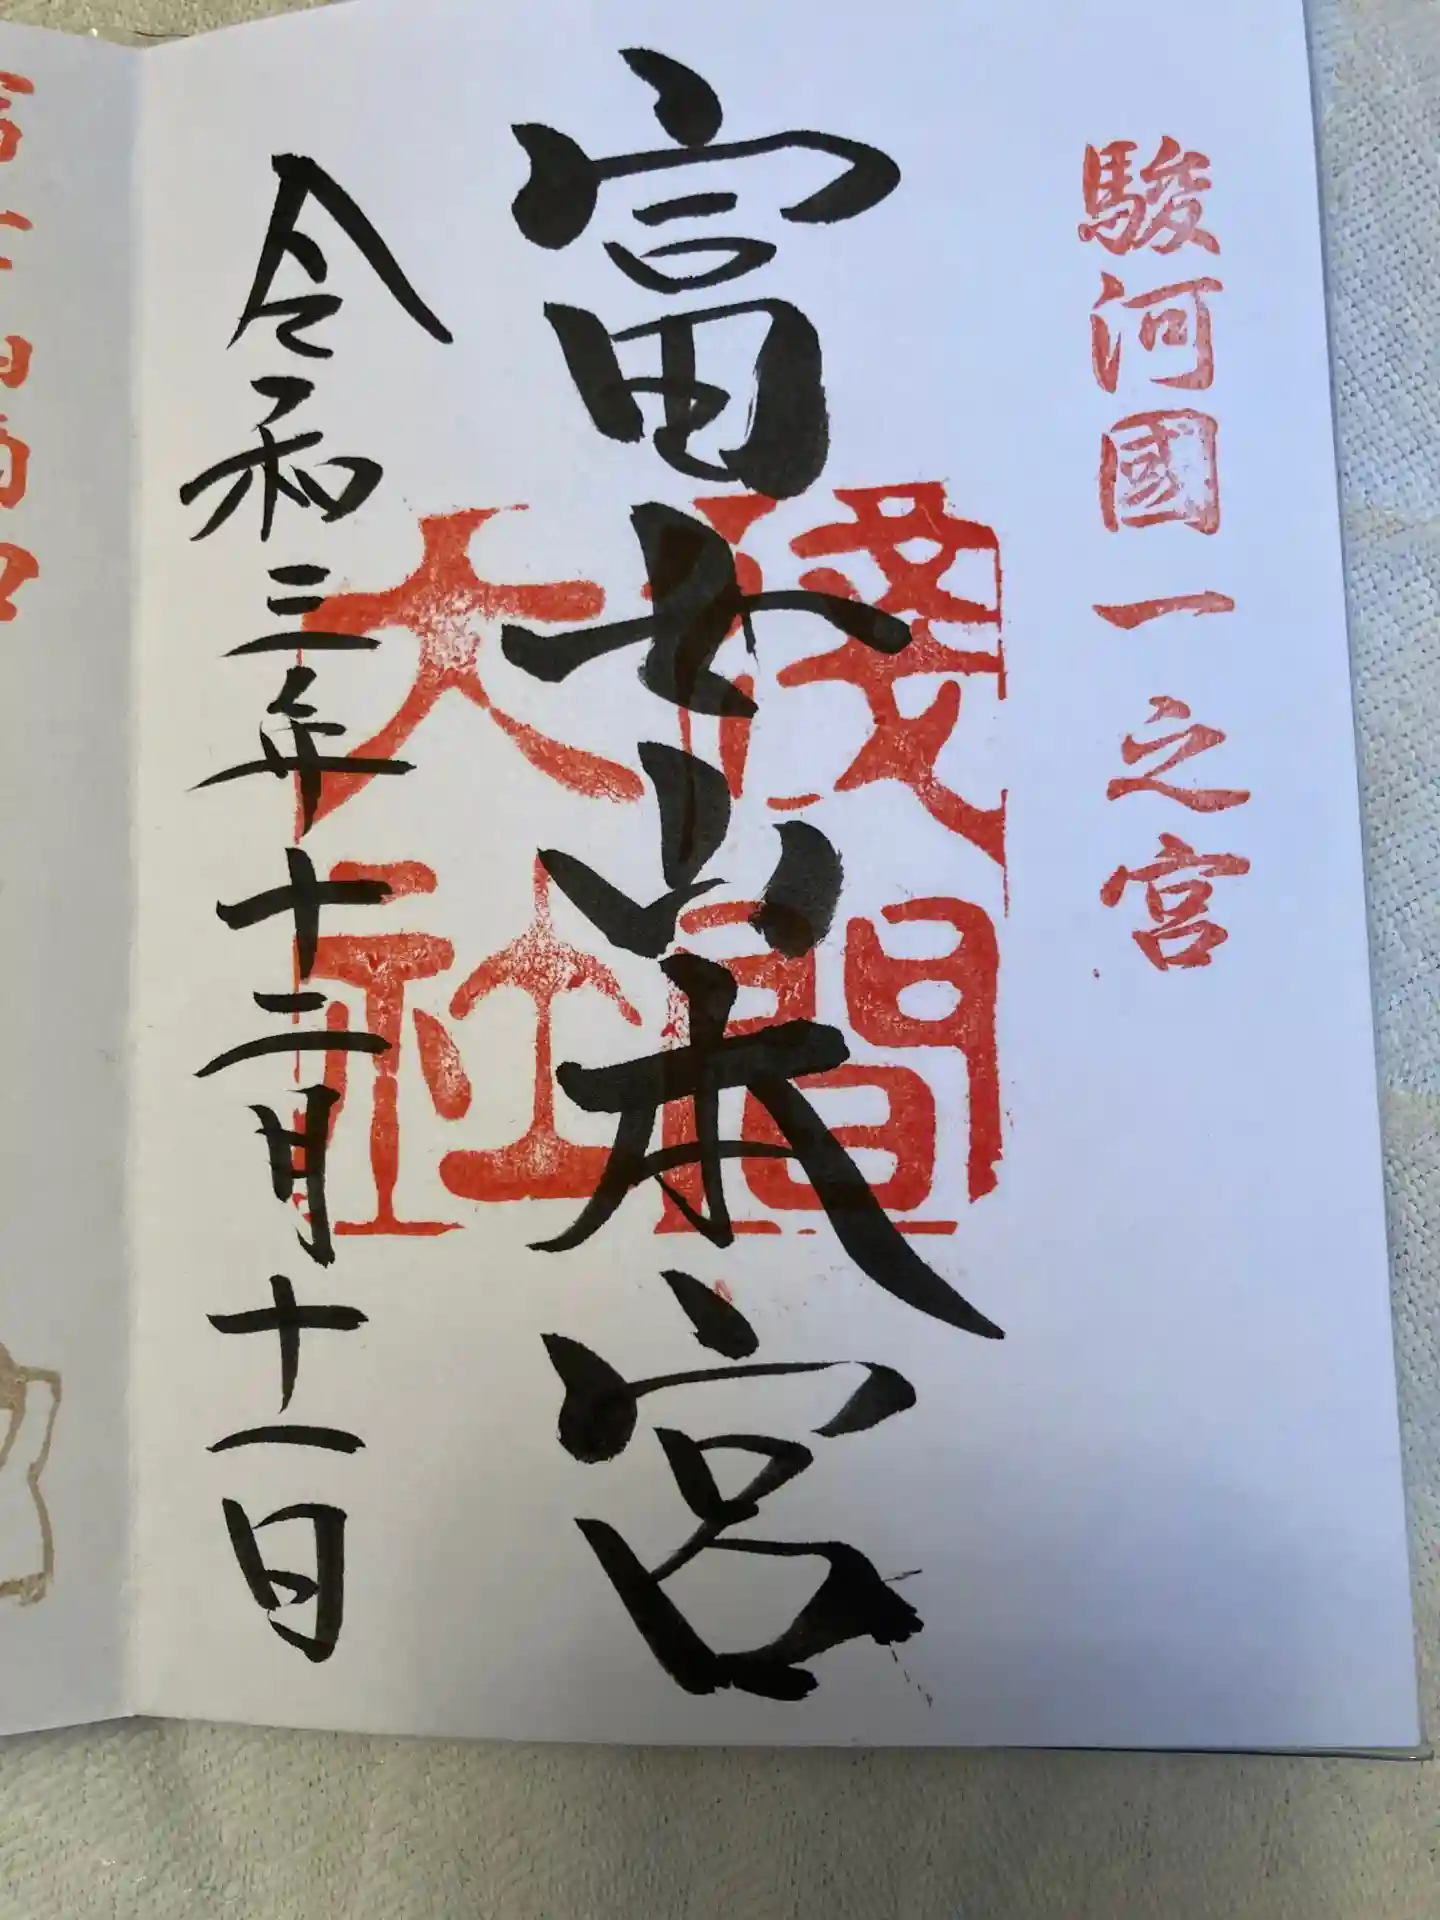 駿河國一之宮
富士山本宮
淺間大社
令和三年十二月十一日